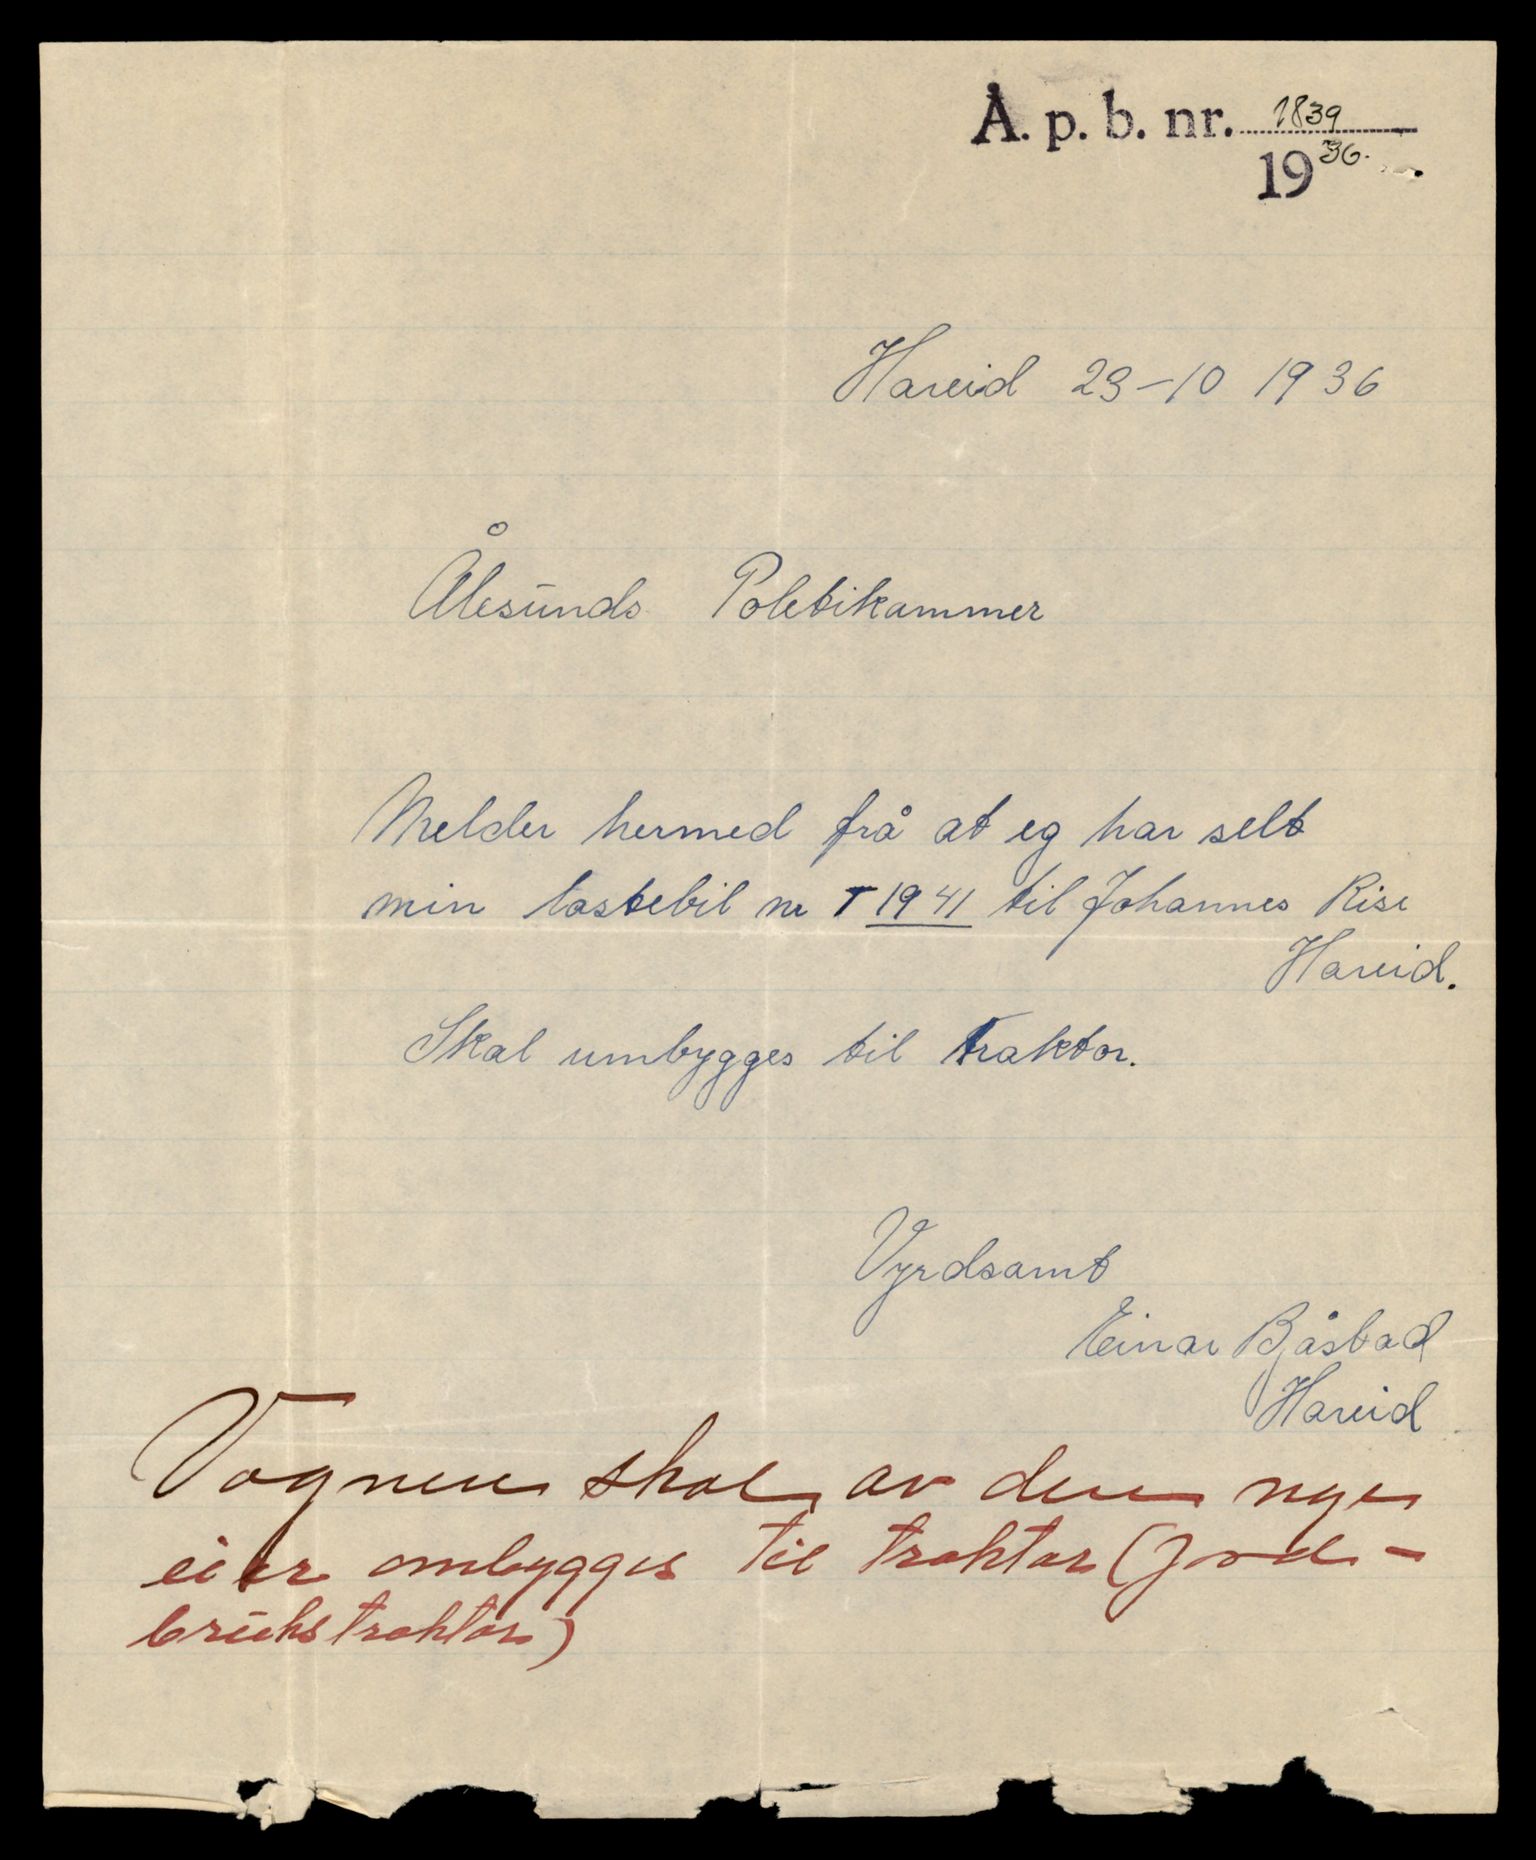 Å. p. b. nr. 1839
1936.
Hareid 23-10 1936
Ålesunds Politikammer
Melder hermed frå at eg har selt
min lastebil nr T 1941 til Johannes Rise
Hareid.
Skal umbygges til traktor.
Vyrdsamt
Einar Bjåstad
Hareid
Vognen skal av den nye
eier ombygges til traktor (Jord-
brukstraktor)